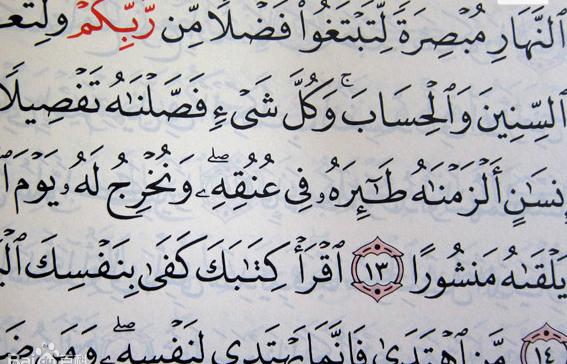 ٱلنَّهَارِ مُبۡصِرَةٗ لِّتَبۡتَغُواْ فَضۡلٗا مِّن رَّبِّكُمۡ وَلِتَعۡ
ٱلسِّنِينَ وَٱلۡحِسَابَۚ وَكُلَّ شَيۡءٖ فَصَّلۡنَٰهُ تَفۡصِيلٗا
إِنسَٰنٍ أَلۡزَمۡنَٰهُ طَٰٓئِرَهُۥ فِي عُنُقِهِۦۖ وَنُخۡرِجُ لَهُۥ يَوۡمَ ٱ
يَلۡقَىٰهُ مَنشُورًا ١٣ ٱقۡرَأۡ كِتَٰبَكَ كَفَىٰ بِنَفۡسِكَ ٱلۡيَ
مَّنِ ٱهۡتَدَىٰ فَإِنَّمَا يَهۡتَدِي لِنَفۡسِهِۦۖ وَمَن ضَ